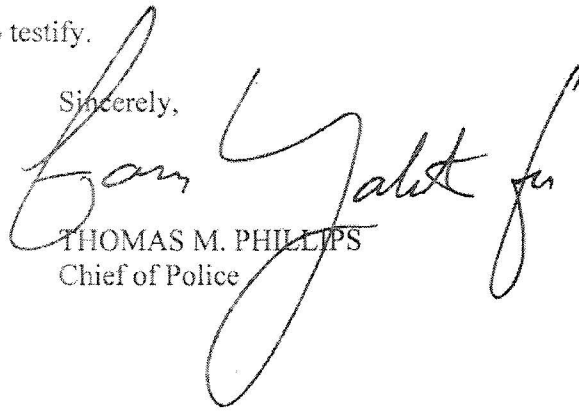 testify.
Sincerely,
THOMAS M. PHILLIPS
Chief of Police